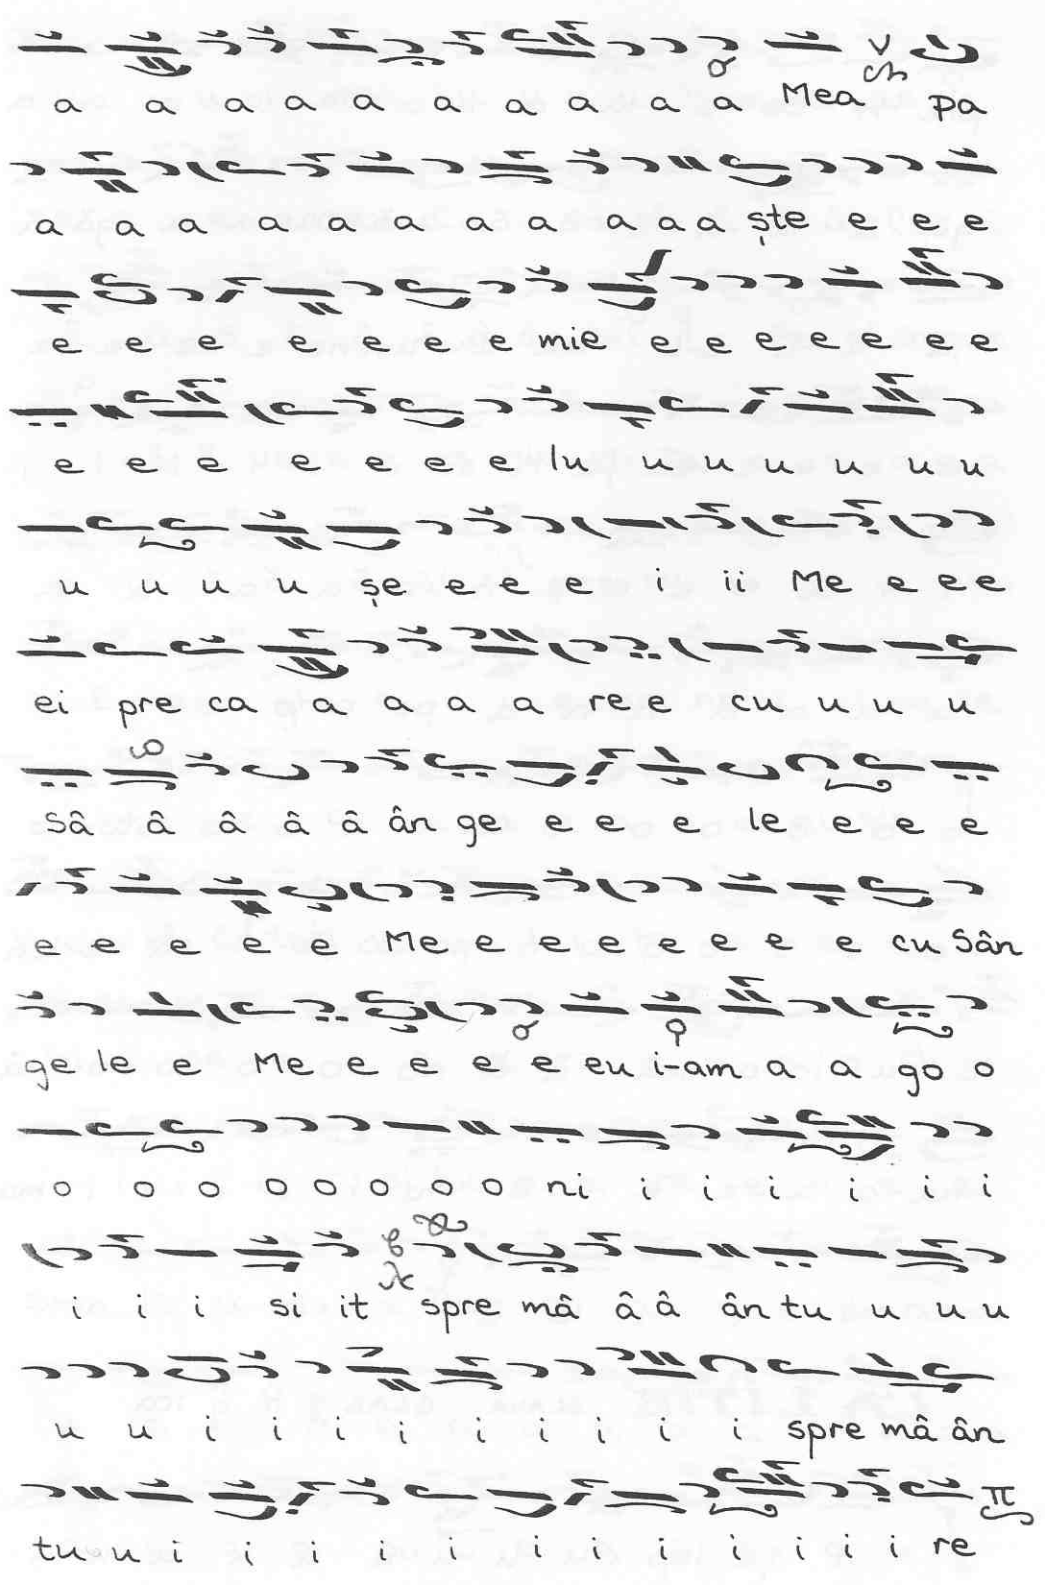 a a a a a a a a a a a Mea pa
a a a a a a a a a a a ște e e e
e e e e e e e mie e e e e e e e
e e e e e e e lu u u u u u u
u u u u șe e e e i ii Me e e e
ei pre ca a a a a re e cu u u u
Sâ â â â â ân ge e e e le e e e
e e e e e Me e e e e e e e cu Sân
ge le e Me e e e e eu i-am a a go o
o o o o o o o o ni i i i i i i
i i i si it spre mâ â â ân tu u u u
u u i i i i i i i i i spre mâ ân
tu u u i i i i i i i i i i i i re